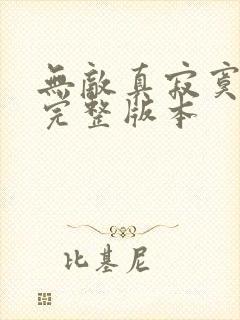 無敵真寂寞
完整版本
比基尼